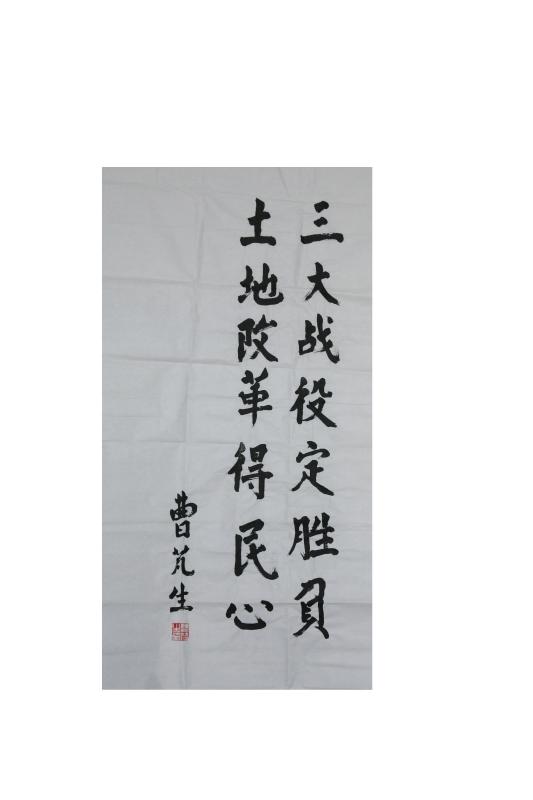 三大战役定胜负
土地改革得民心
曹芃生